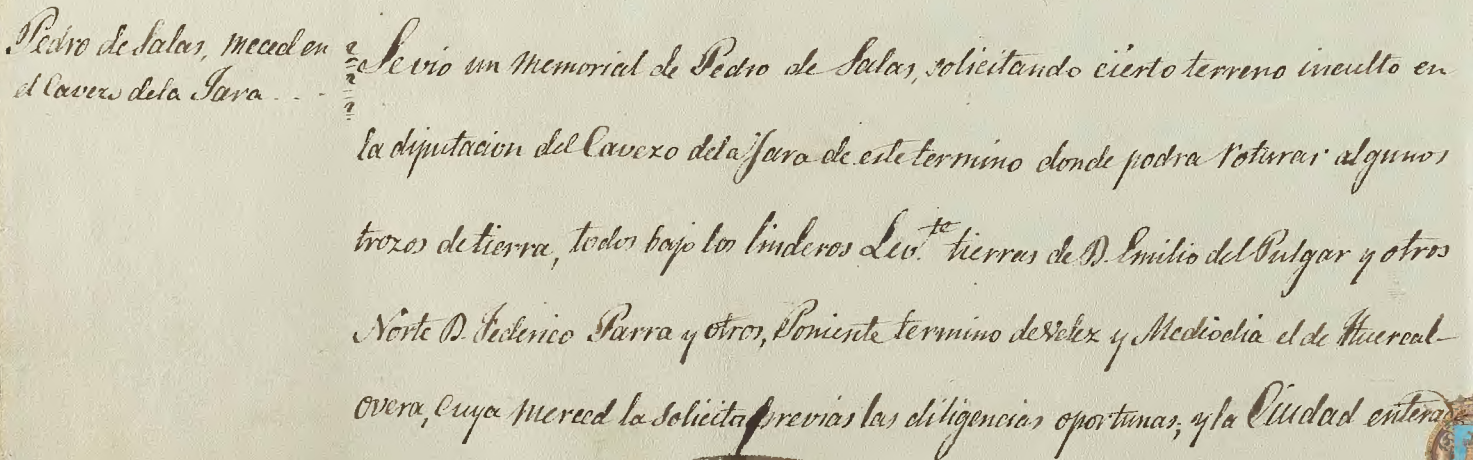 Pedro de Salas, meced en
el Cavezo dela Jara
Se vio un Memorial de Pedro de Salas, solicitando cierto terreno inculto en
la diputacion del Cavezo dela Jara de este termino donde podra roturar algunos
trozos de tierra, todos bajo los linderos Lev.te tierras de D. Emilio del Pulgar y otros
Norte D. Federico Parra y otros, Poniente termino de Velez y Mediodia el de Huercal-
overa, cuya merced la solicita previas las diligencias oportunas; y la Ciudad enterada